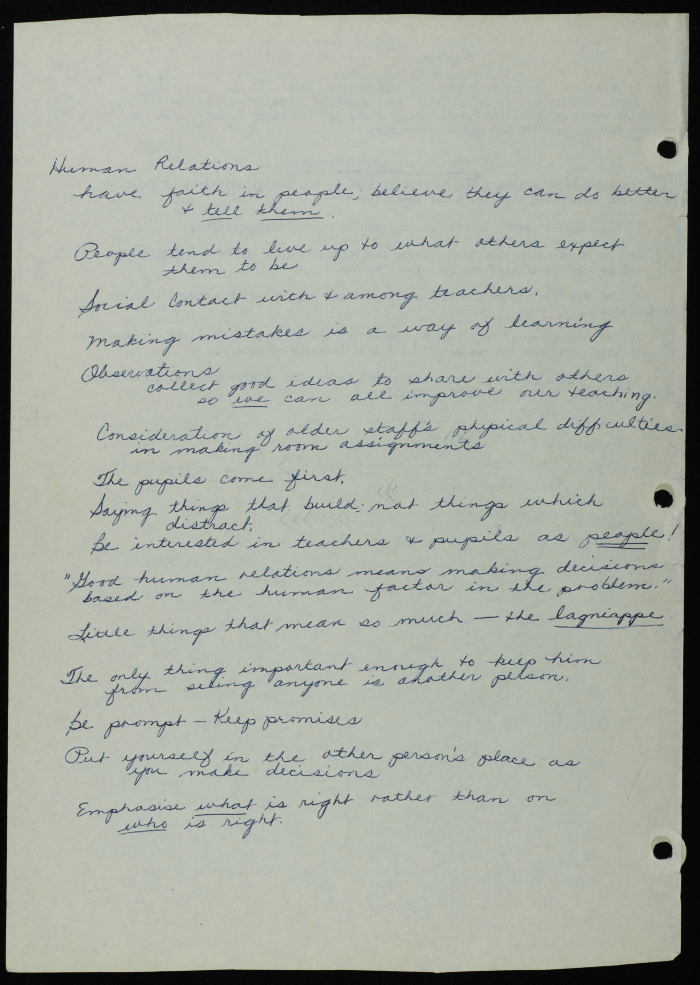 Human Relations
have faith in people; believe they can do better
& tell them.
People tend to live up to what others expect
them to be
Social Contact with & among teachers.
Making mistakes is a way of learning
Observations
collect good ideas to share with others
so we can all improve our teaching.
Consideration of older staff's physical difficulties
in making room assignments
The pupils come first.
Saying things that build; not things which
distract.
Be interested in teachers & pupils as people!
"Good human relations means making decisions
based on the human factor in the problem."
Little things that mean so much — the lagniappe.
The only thing important enough to keep him
from seeing anyone is another person.
Be prompt — Keep promises
Put yourself in the other person's place as
you make decisions
Emphasise what is right rather than on
who is right.